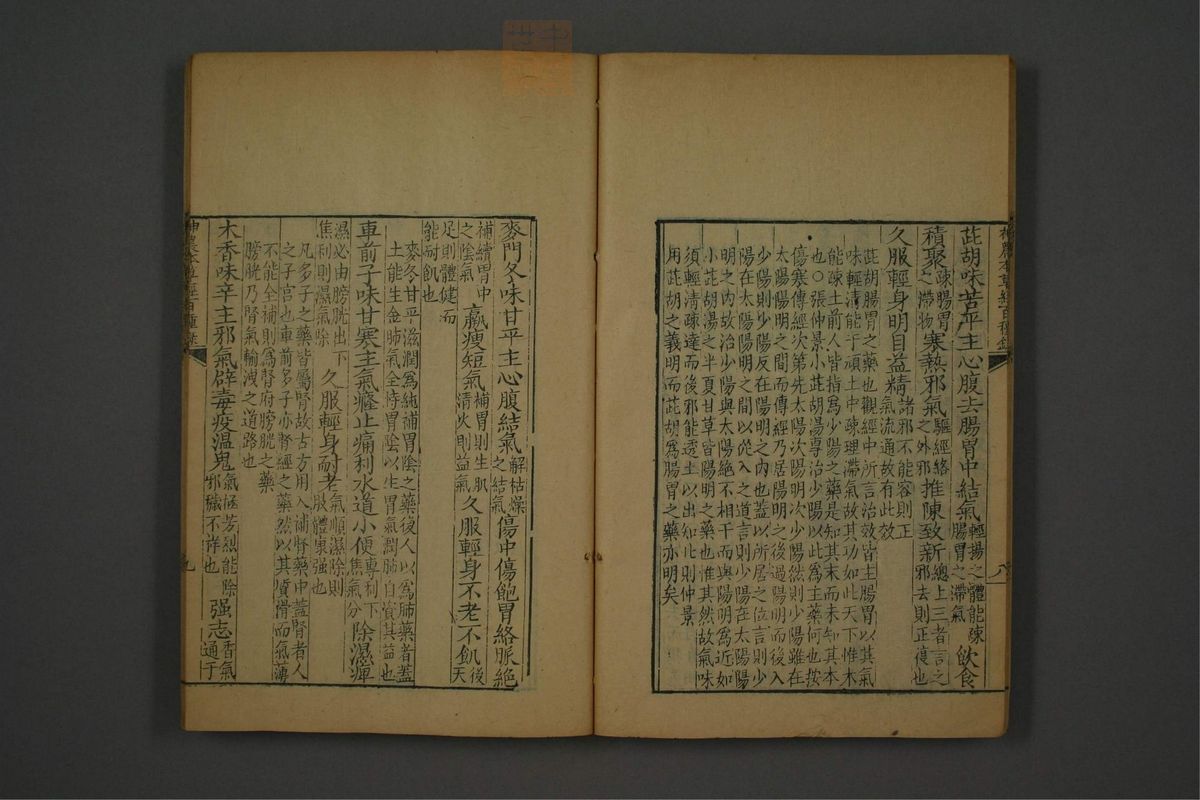 茈胡味苦平主心腹去腸胃中結氣輕揚之體能疎腸胃之滯氣飲食
積聚疎腸胃之滯物寒熱邪氣驅經絡之外邪推陳致新總上三者言之邪去則正復也
久服輕身明目益精諸邪不能容則正氣流通故有此效
茈胡腸胃之藥也觀經中所言治效皆主腸胃以其氣
味輕清能于頑土中疎理滯氣故其功如此天下惟木
能疎土前人皆指爲少陽之藥是知其末而未知其本
也○張仲景小茈胡湯專治少陽以此爲主藥何也按
傷寒傳經次第先太陽次陽明次少陽然則少陽雖在
太陽陽明之間而傳經乃居陽明之後過陽明而後入
少陽則少陽反在陽明之內也蓋以所居之位言則少
陽在太陽陽明之間以從入之道言則少陽在太陽陽
明之內故治少陽與太陽絕不相干而與陽明爲近如
小茈胡湯之半夏甘草皆陽明之藥也惟其然故氣味
須輕清疎達而後邪能透土以出知此則仲景
用茈胡之義明而茈胡爲腸胃之藥亦明矣
神農本草經百種錄
八
麥門冬味甘平主心腹結氣解枯燥之結氣傷中傷飽胃絡脈絕
補續胃中之陰氣羸瘦短氣補胃則生肌清火則益氣久服輕身不老不飢後天
足則體健而能耐飢也
麥冬甘平滋潤爲純補胃陰之藥後人以爲肺藥者蓋
土能生金肺氣全恃胃陰以生胃氣潤肺自資其益也
車前子味甘寒主氣癃止痛利水道小便專利下焦氣分除濕痺
濕必由膀胱出下焦利則濕氣除久服輕身耐老氣順濕除則肢體康强也
凡多子之藥皆屬腎故古方用入補腎藥中蓋腎者人
之子宮也車前多子亦腎經之藥然以其質滑而氣薄
不能全補則爲腎府膀胱之藥
膀胱乃腎氣輸洩之道路也
木香味辛主邪氣辟毒疫溫鬼氣極芳烈能除邪穢不祥也强志香氣通于
神農本草經百種錄
九